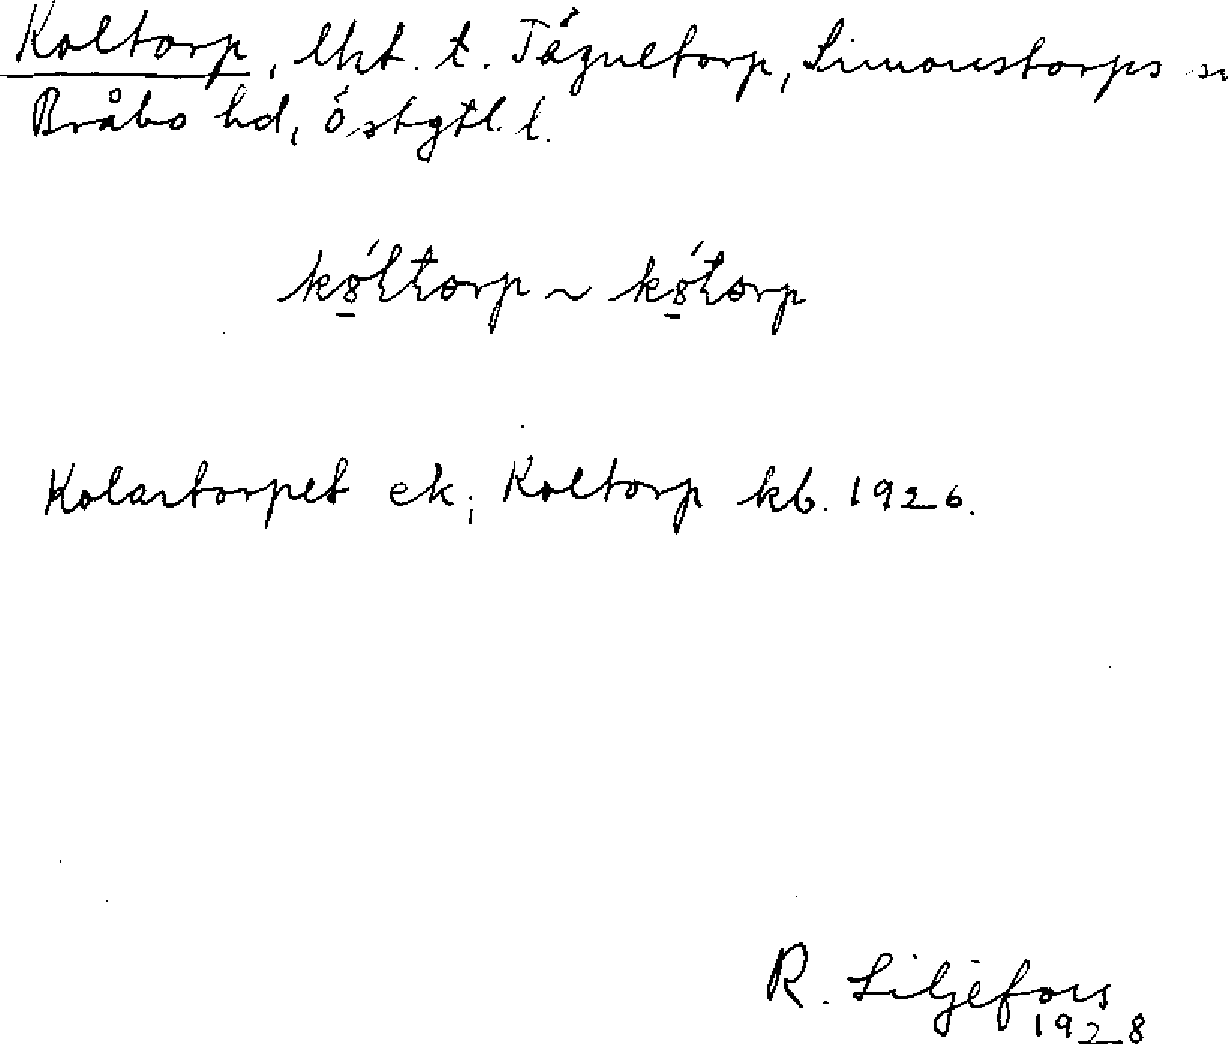 Koltorp, lht. t. Tågnetorp, Simonstorps sn
Bråbo hd, Östgtl. l.
Kolartorpet ek; Koltorp kb. 1926.
R. Liljefors
1928